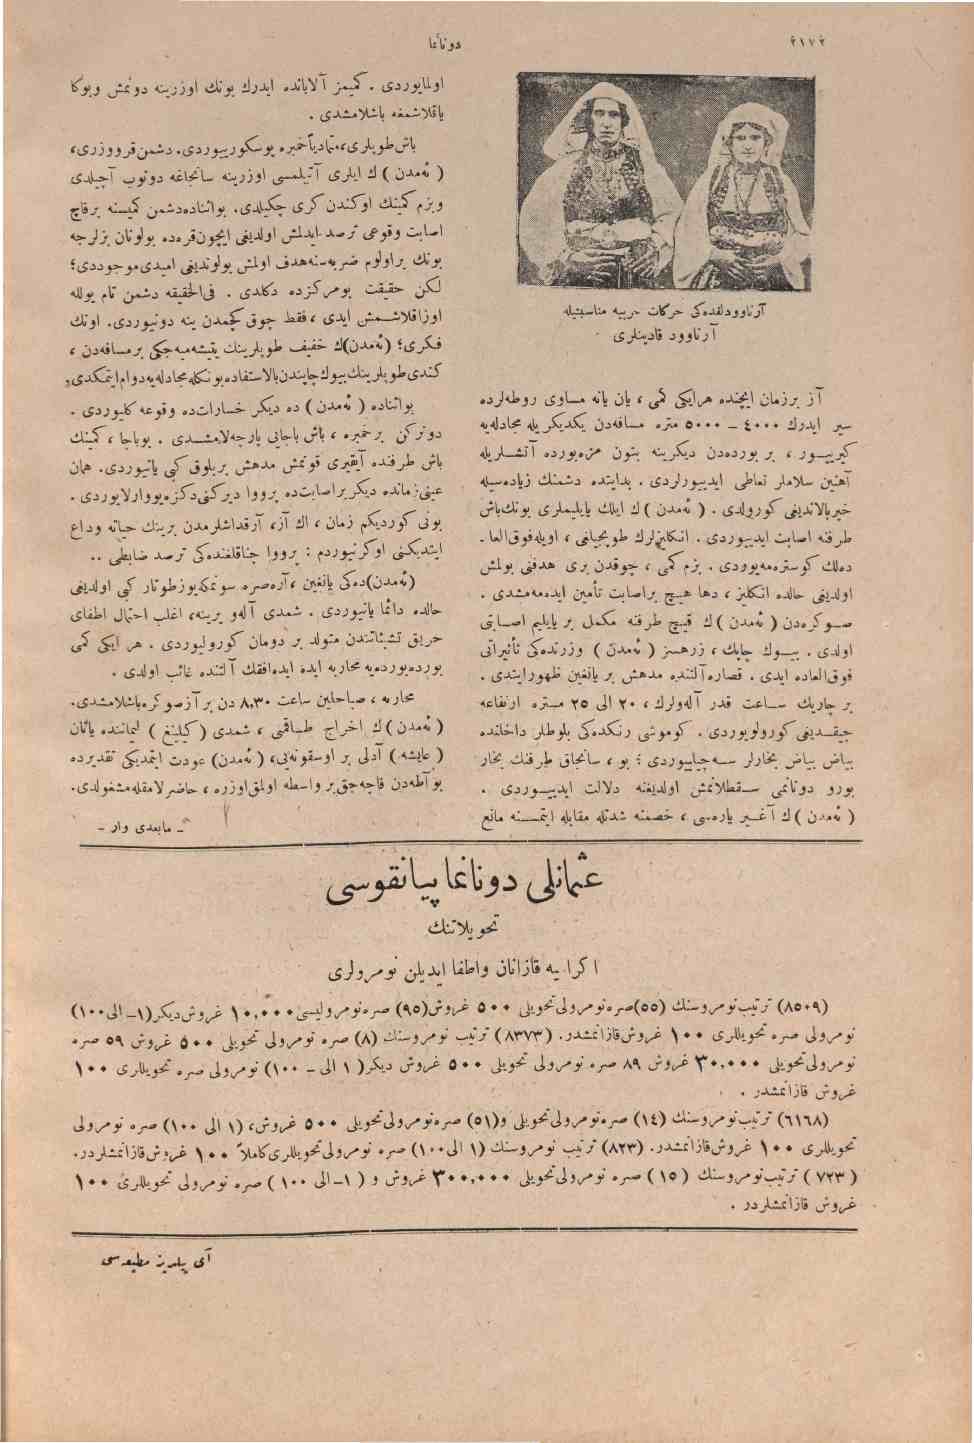 دونانما
٢١٧٢
آرناوودلقده‌كی حركات حربیه مناسبتیله
آرناوود قادینلری
آز برزمان ایچنده هرایكی گمی ، یان یانه مساوی روطه‌لرده
سیر ایدرك ٤٠٠٠ – ٥٠٠٠ متره مسافه‌دن یكدیكریله مجادله‌یه
كیرییـور ، بر بورده‌دن دیكرینه بتون مزه‌بورده آتشـلریله
آهنین سلاملر تعاطی ایدییورلردی . بدایتده دشمنك زیاده‌سیله
خیربالاندیغی كورولدی . ( ئه‌مدن ) ك ایلك یایلیملری بونك‌باش
طرفنه اصابت ایدییوردی . انكلیزلرك طوپجیلغی ، اویله‌فوق‌العا-
ده‌لك كوستره‌مه‌یوردی . بزم گمی ، چوقدن بری هدفنی بولمش
اولدیغی حالده انكلیز ، دها هیـچ براصابت تأمین ایده‌مه‌مشدی .
صـوكره‌دن ( ئه‌مدن ) ك قیـچ طرفنه مكمل بر یایلیم اصـابتی
اولدی . بیـوك چاپك ، زرهسز ( ئه‌مدن ) وزرنده‌كی تأثیراتی
فوق‌العاده ایدی . قصاره‌آلتنده مدهش بر یانغین ظهورایتدی .
بر چاریك سـاعت قدر آله‌ولرك ، ٢٠ الی ٢٥ متـره ارتفاعه
چیقـدیغی كورولویوردی . كوموشی رنكده‌كی بلوطلر داخلنده
بیاض بیاض بخارلر سـه‌چیلییوردی ؛ بو ، سانجاق طرفنك بخار
بورو دوناتمی سـقطلانمش اولدیغنه دلالت ایدییـوردی .
( ئه‌مدن ) ك آغـیر یاره‌سی ، خصمنه شدتله مقابله ایتمـسنه مانع
اولمایوردی . گمیمز آلاباندە ایدرك بونك اوزرینه دونمش وبوكا
یاقلاشمغه باشلامشدی .
باش‌طوپلری،متمادیاً‌خمبره پوسكورییوردی. دشمن‌قرووزری،
( ئه‌مدن ) ك ایلری آتیلمسی اوزرینه سانجاغه دونوب آچیلدی
وبزم گمینك اوكندن كری چكیلدی. بواثناده‌دشمن گمیسنه برقاچ
اصابت وقوعی ترصد ایدلمش اولدیغی ایچون‌قره‌ده بولونان بزلرجه
بونك براولوم ضربه‌سنه‌هدف اولمش بولوندیغی امیدی‌موجوددی؛
لكن حقیقت بومركزده دكلدی . فی‌الحقیقه دشمن تام یولله
اوزاقلاشـمش ایدی ، فقط چوق كچمدن ینه دونیوردی. اونك
فكری؛ (ئه‌مدن)ك خفیف طوپلرینك یتیشه‌میه‌جكی برمسافه‌دن ،
كندی‌طوپلرینك‌بیوك‌چاپندن‌بالاستفاده‌بونكله‌مجادله‌یه‌دوام‌ایتمكدی.
بواثناده ( ئه‌مدن ) ده دیكر خسارات‌ده وقوعه كلیوردی .
دونركن برخمبره ، باش باجایی پارچه‌لامشـدی . بوباجا ، گمینك
باش طرفنده آیقیری قونمش مدهش بربلوق كبی یاتیوردی. همان
عینی‌زمانده دیكربراصابت‌ده پرووا دیركنی‌دكزه‌یووارلایوردی .
بونی كوردیكم زمان ، اك آز، آرقداشلرمدن برینك حیاته وداع
ایتدیكنی اوكرنیوردم : پرووا چناقلغنده‌كی ترصد ضابطی ..
(ئه‌مدن)ده‌كی یانغین ،آره‌صره سونمكه‌یوزطوتار كبی اولدیغی
حالده دائما یانیوردی . شمدی آله‌و یرینه، اغلب احتمال اطفای
حریق تشبثاتندن متولد بر دومان كورولیوردی . هر ایكی گمی
بورده‌بورده‌یه محاربه ایده ایده‌افقك آلتنده غائب اولدی .
محاربه ، صباحلین ساعت ٨,٣٠ دن بر آزصوكره‌باشلامشدی.
( ئه‌مدن )ك اخراج طـاقمی ، شمدی ( كیلینغ ) لیماننده یاتان
( عایشه ) آدلی بر اوسقونه‌یی، (ئه‌مدن) عودت ایتمدیكی تقدیرده
بوآطه‌دن قاچه‌جق‌بر واسطه اولمق‌اوزره ، حاضرلامقله‌مشغولدی.
– مابعدی وار –
عثمانلی دونانما پیانقوسی
تحویلاتنك
اكرامیه قازانان واطفا ایدیلن نومرولری
(٨٥٠٩) ترتیب‌نومروسنك (٥٥)صره‌نومرولی‌تحویلی ٥٠٠ غروش(٩٥) صره‌نومرولیسی١٠,٠٠٠ غروش‌دیكر(١–الی١٠٠)
نومرولی صره تحویللری ١٠٠ غروش‌قازانمشدر. (٨٣٧٣) ترتیب نومروسنك (٨) صره نومرولی تحویلی ٥٠٠ غروش ٥٩ صره
نومرولی‌تحویلی ٣٠,٠٠٠ غروش ٨٩ صره نومرولی تحویلی ٥٠٠ غروش دیكر( ١ الی – ١٠٠) نومرولی صره تحویللری ١٠٠
غروش قازانمشدر .
(٦١٦٨) ترتیب‌نومروسنك (١٤) صره‌نومرولی‌تحویلی و(٥١) صره‌نومرولی‌تحویلی ٥٠٠ غروش، (١ الی ١٠٠) صره نومرولی
تحویللری ١٠٠ غروش‌قازانمشدر. (٨٢٣) ترتیب نومروسنك (١ الی١٠٠) صره نومرولی‌تحویللری‌كاملاً ١٠٠ غروش‌قازانمشلردر.
( ٧٢٣ ) ترتیب‌نومروسنك (١٥) صره نومرولی‌تحویلی ٣٠٠,٠٠٠ غروش و ( ١–الی ١٠٠ ) صره نومرولی تحویللری ١٠٠
غروش قازانمشلردر .
آی ییلدیز مطبعه‌سی